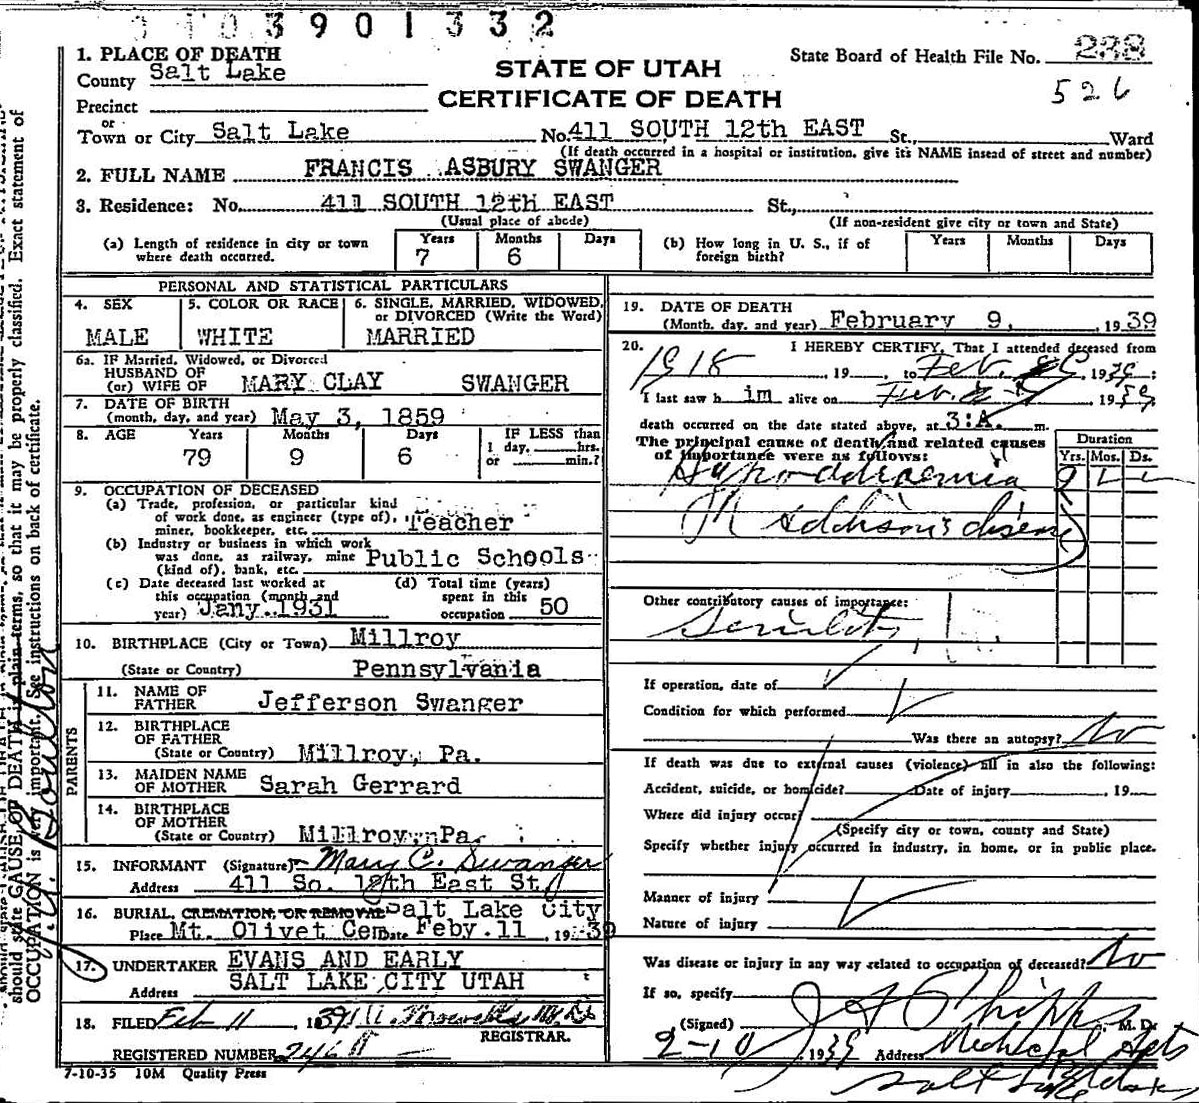 3901332
1. PLACE OF DEATH
County Salt Lake
STATE OF UTAH
CERTIFICATE OF DEATH
State Board of Health File No. 238
526
Precinct
or
Town or City Salt Lake No. 411 SOUTH 12th EAST St., Ward
(If death occurred in a hospital or institution, give it's NAME insead of street and number)
2. FULL NAME FRANCIS ASBURY SWANGER
3. Residence: No. 411 SOUTH 12th EAST St.,
(Usual place of abode) (If non-resident give city or town and State)
(a) Length of residence in city or town where death occurred. Years 7 Months 6 Days
(b) How long in U. S., if of foreign birth? Years Months Days
PERSONAL AND STATISTICAL PARTICULARS
4. SEX MALE
5. COLOR OR RACE WHITE
6. SINGLE, MARRIED, WIDOWED, or DIVORCED (Write the Word) MARRIED
6a. IF Married, Widowed, or Divorced
HUSBAND OF
(or) WIFE OF MARY CLAY SWANGER
7. DATE OF BIRTH
(month, day, and year) May 3, 1859
8. AGE Years 79 Months 9 Days 6 IF LESS than 1 day, hrs. or min.?
9. OCCUPATION OF DECEASED
(a) Trade, profession, or particular kind
of work done, as engineer (type of), Teacher
miner, bookkeeper, etc.
(b) Industry or business in which work
was done, as railway, mine Public Schools
(kind of), bank, etc.
(c) Date deceased last worked at
this occupation (month and
year) Jany. 1931
(d) Total time (years)
spent in this
occupation 50
10. BIRTHPLACE (City or Town) Millroy
(State or Country) Pennsylvania
PARENTS
11. NAME OF
FATHER Jefferson Swanger
12. BIRTHPLACE
OF FATHER
(State or Country) Millroy, Pa.
13. MAIDEN NAME
OF MOTHER Sarah Gerrard
14. BIRTHPLACE
OF MOTHER
(State or Country) Millroy, Pa.
15. INFORMANT (Signature) Mary C. Swanger
Address 411 So. 12th East St.
16. BURIAL, CREMATION, OR REMOVAL Salt Lake City
Place Mt. Olivet Cem Date Feby. 11, 1939
17. UNDERTAKER EVANS AND EARLY
Address SALT LAKE CITY UTAH
18. FILED Feb 11 1939
REGISTRAR.
REGISTERED NUMBER
7-10-35 10M Quality Press
19. DATE OF DEATH
(Month, day, and year) February 9, 1939
20. I HEREBY CERTIFY, That I attended deceased from
1918, 19 , to Feb. 1939;
I last saw h im alive on Feb. 1939
death occurred on the date stated above, at 3:A. m.
The principal cause of death and related causes
of importance were as follows:
Duration
Yrs. Mos. Ds.
Addison's disease
Other contributory causes of importance:
Senility
If operation, date of
Condition for which performed
Was there an autopsy? No
If death was due to external causes (violence) fill in also the following:
Accident, suicide, or homicide? Date of injury , 19
Where did injury occur?
(Specify city or town, county and State)
Specify whether injury occurred in industry, in home, or in public place.
Manner of injury
Nature of injury
Was disease or injury in any way related to occupation of deceased? No
If so, specify
(Signed) J A Phipps M. D.
2-10, 1939 Address Medical Arts
Salt Lake
should state CAUSE OF DEATH in plain terms, so that it may be properly classified. Exact statement of
OCCUPATION is very important. See instructions on back of certificate.